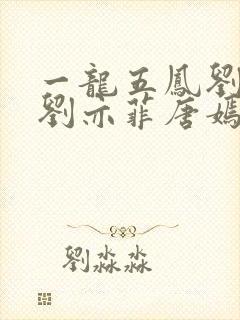 一龍五鳳劉
劉亦菲唐嫣
劉淼淼